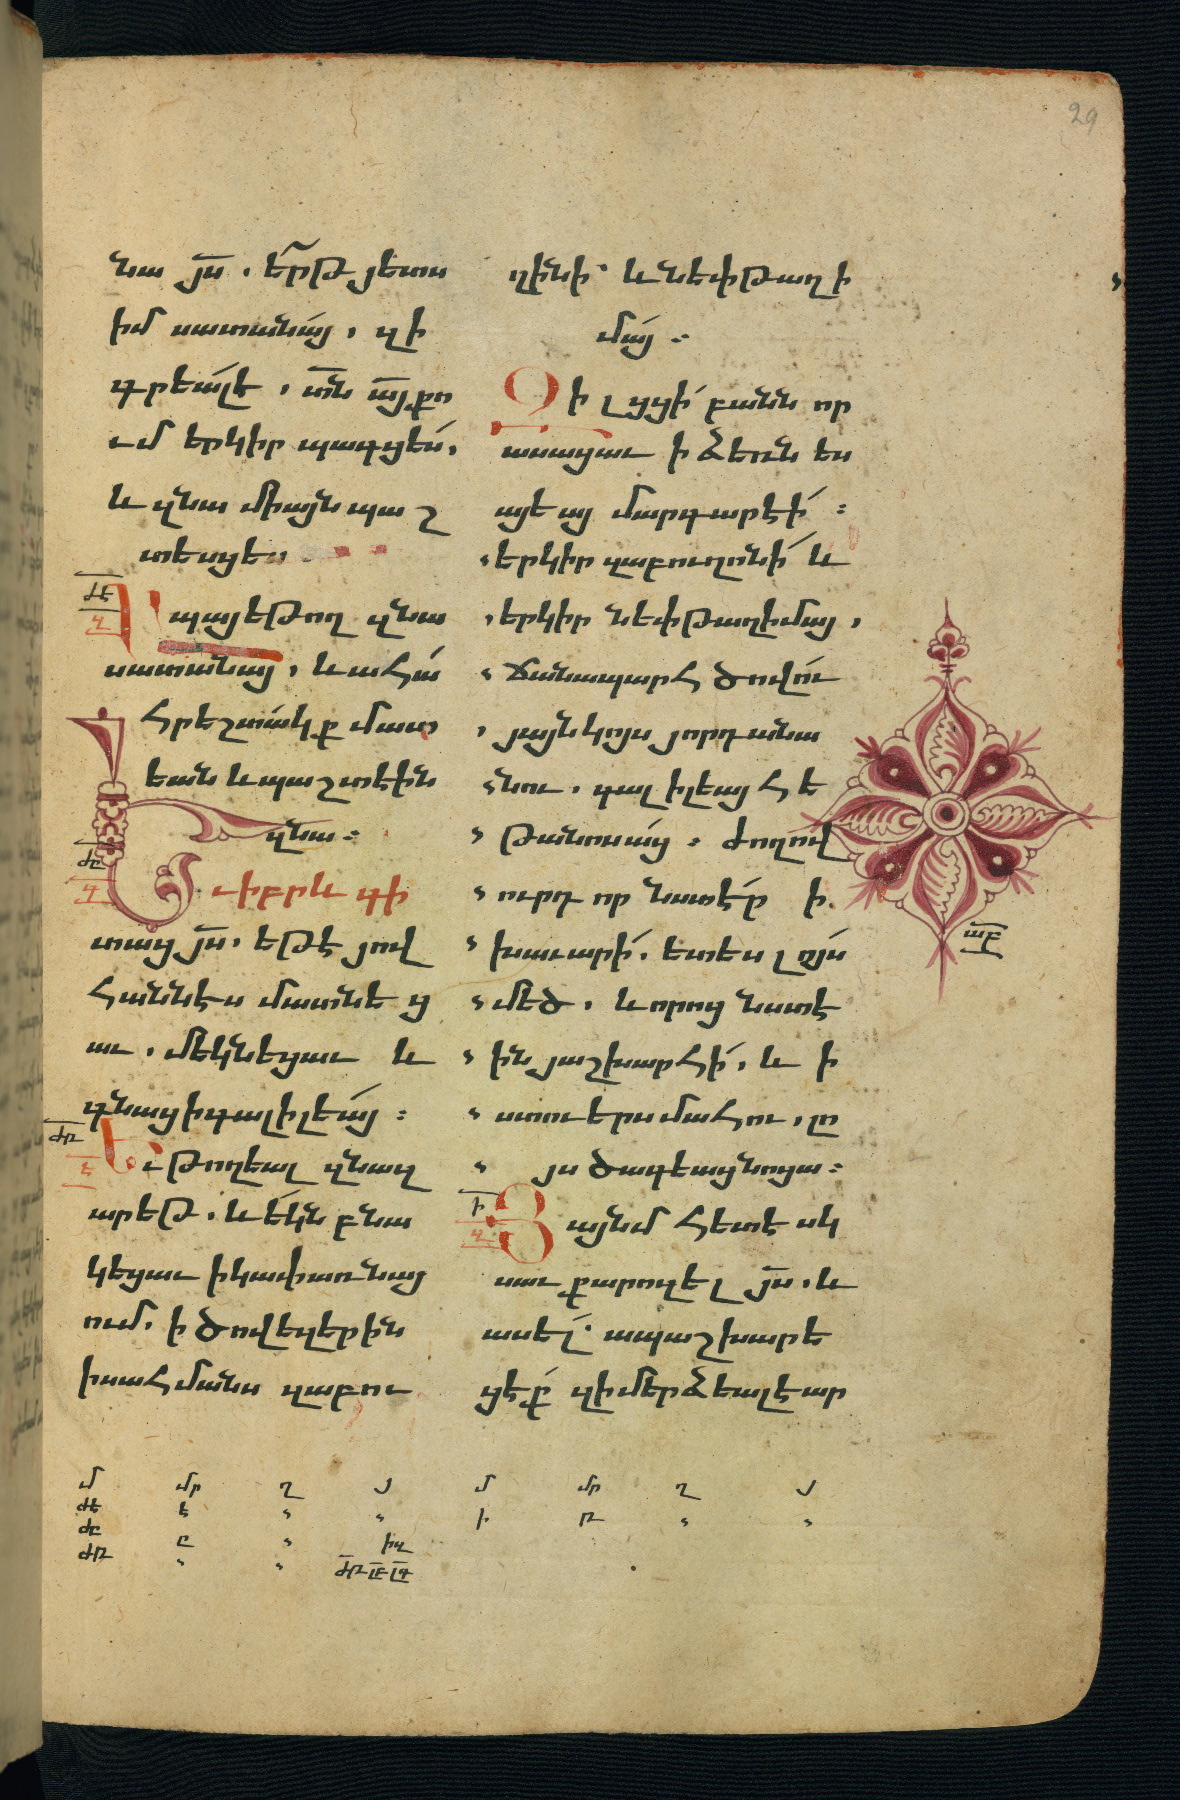 29
նա յս . ե՛րթ յետս
իմ սատանայ , զի
գրեալ է , տն ա՛յ քո
ւմ երկիր պագցես,
և զնա միայն պաշ
տեսցես
Ապա յեթող զնա
սատանայ , և ահա
հրեշտակք մատ
եան և պաշտէին
զնա :
Եւ իբրև գի
տաց յս . եթէ յով
հաննէս մատնեց
աւ , մեկնեցաւ և
գնաց ի գալիլեայ :
Եւ թողեալ զնազ
արեթ . և եկն բնա
կեցաւ ի կափառնայ
ում . ի ծովեզերին
ի սահմանս զաբու
ղինի ՝ և նեփթաղի
մայ :
Զի լցցի բանն որ
ասացաւ ի ձեռն ես
այեայ մարգարէի :
երկիր զաբուղոնի և
երկիր նեփթաղիմայ ,
ճանապարհ ծովու
յայնկոյս յորդանա
նու . գալիլեայ հե
թանոսաց : ժողով
ուրդ որ նստէր ի
խաւարի . ետես լոյս
մեծ . և որոց նստէ
ին յաշխարհի , և ի
ստուերս մահու , լո
յս ծագեաց նոցա :
Յայնմ հետէ սկ
սաւ քարոզել յս . և
ասել ՝ ապաշխարե
ցէք զի մերձեալ է ար
մ մր ղ յ մ մր ղ յ